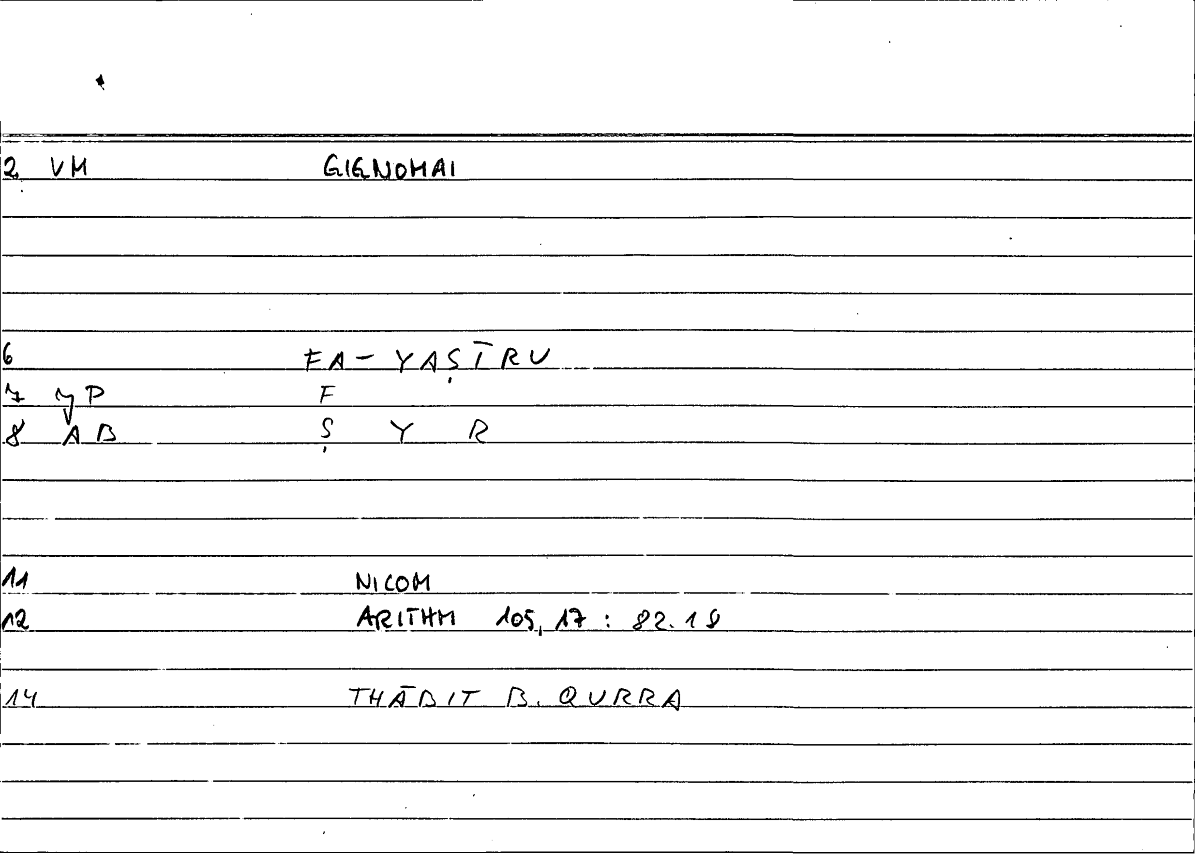 2 VM GIGNOMAI
6 FA- YAṢĪRU
7 P F
8 AB Ṣ Y R
11 NICOM
12 ARITHM 105,17 : 82.18
14 THĀBIT B. QURRA